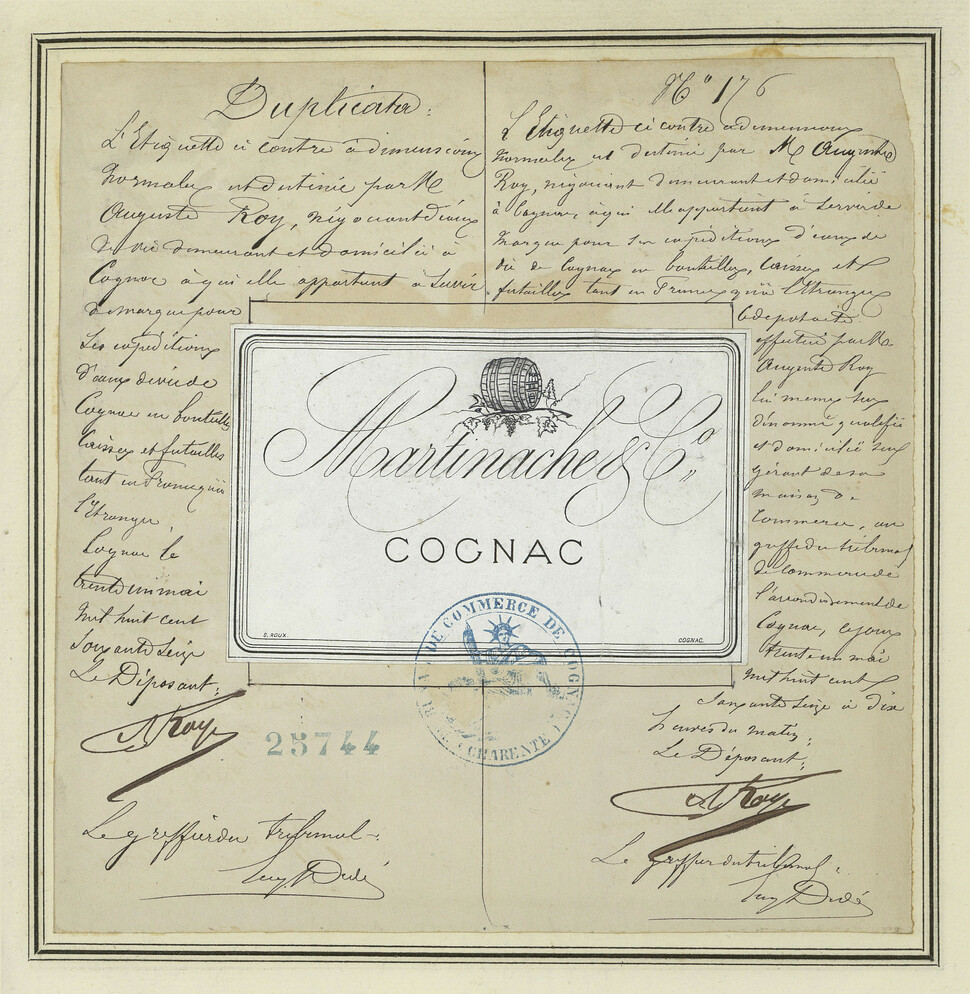 Duplicata :
L'Etiquette ci contre a dimensions
normales est destinée par M
Auguste Roy, négociant d'eaux
de vie demeurant et domicilié à
Cognac à qui elle appartient à Servir
de marque pour
Ses expéditions
d'eaux de vie de
Cognac en bouteilles
Caisses et futailles
tant en France qu'à
l'Etranger
Cognac le
trente un mai
mil huit cent
soixante Seize
Le Déposant :
A Roy
25744
Le greffier du tribunal :
No 176
L'Etiquette ci contre a dimensions
normales est destinée par M Auguste
Roy, négociant demeurant et domicilié
à Cognac, à qui elle appartient à Servir de
marque pour Ses expéditions d'eaux de
vie de Cognac en bouteilles, Caisses et
futailles tant en France qu'à l'Etranger
Ce depot a été
effectué par M.
Auguste Roy
lui meme sus
dénommé qualifié
et domicilié seul
gérant de sa
maison de
Commerce, au
greffe du tribunal
de Commerce de
l'arrondissement de
Cognac, ce jour
trente un mai
mil huit cent
Soixante Seize à dix
heures du matin
Le Déposant :
A Roy
Le greffier du tribunal :
Martinache & Co
COGNAC
G. ROUX.
COGNAC.
DE COMMERCE DE COGNAC
(CHARENTE)